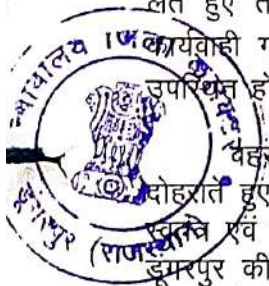 लते हुए त
कार्यवाही ग
उपस्थित हो
बहर
दोहराते हुए
स्वतंत्र एवं
डूंगरपुर की
न्यायालय
डूंगरपुर (राजस्थान)